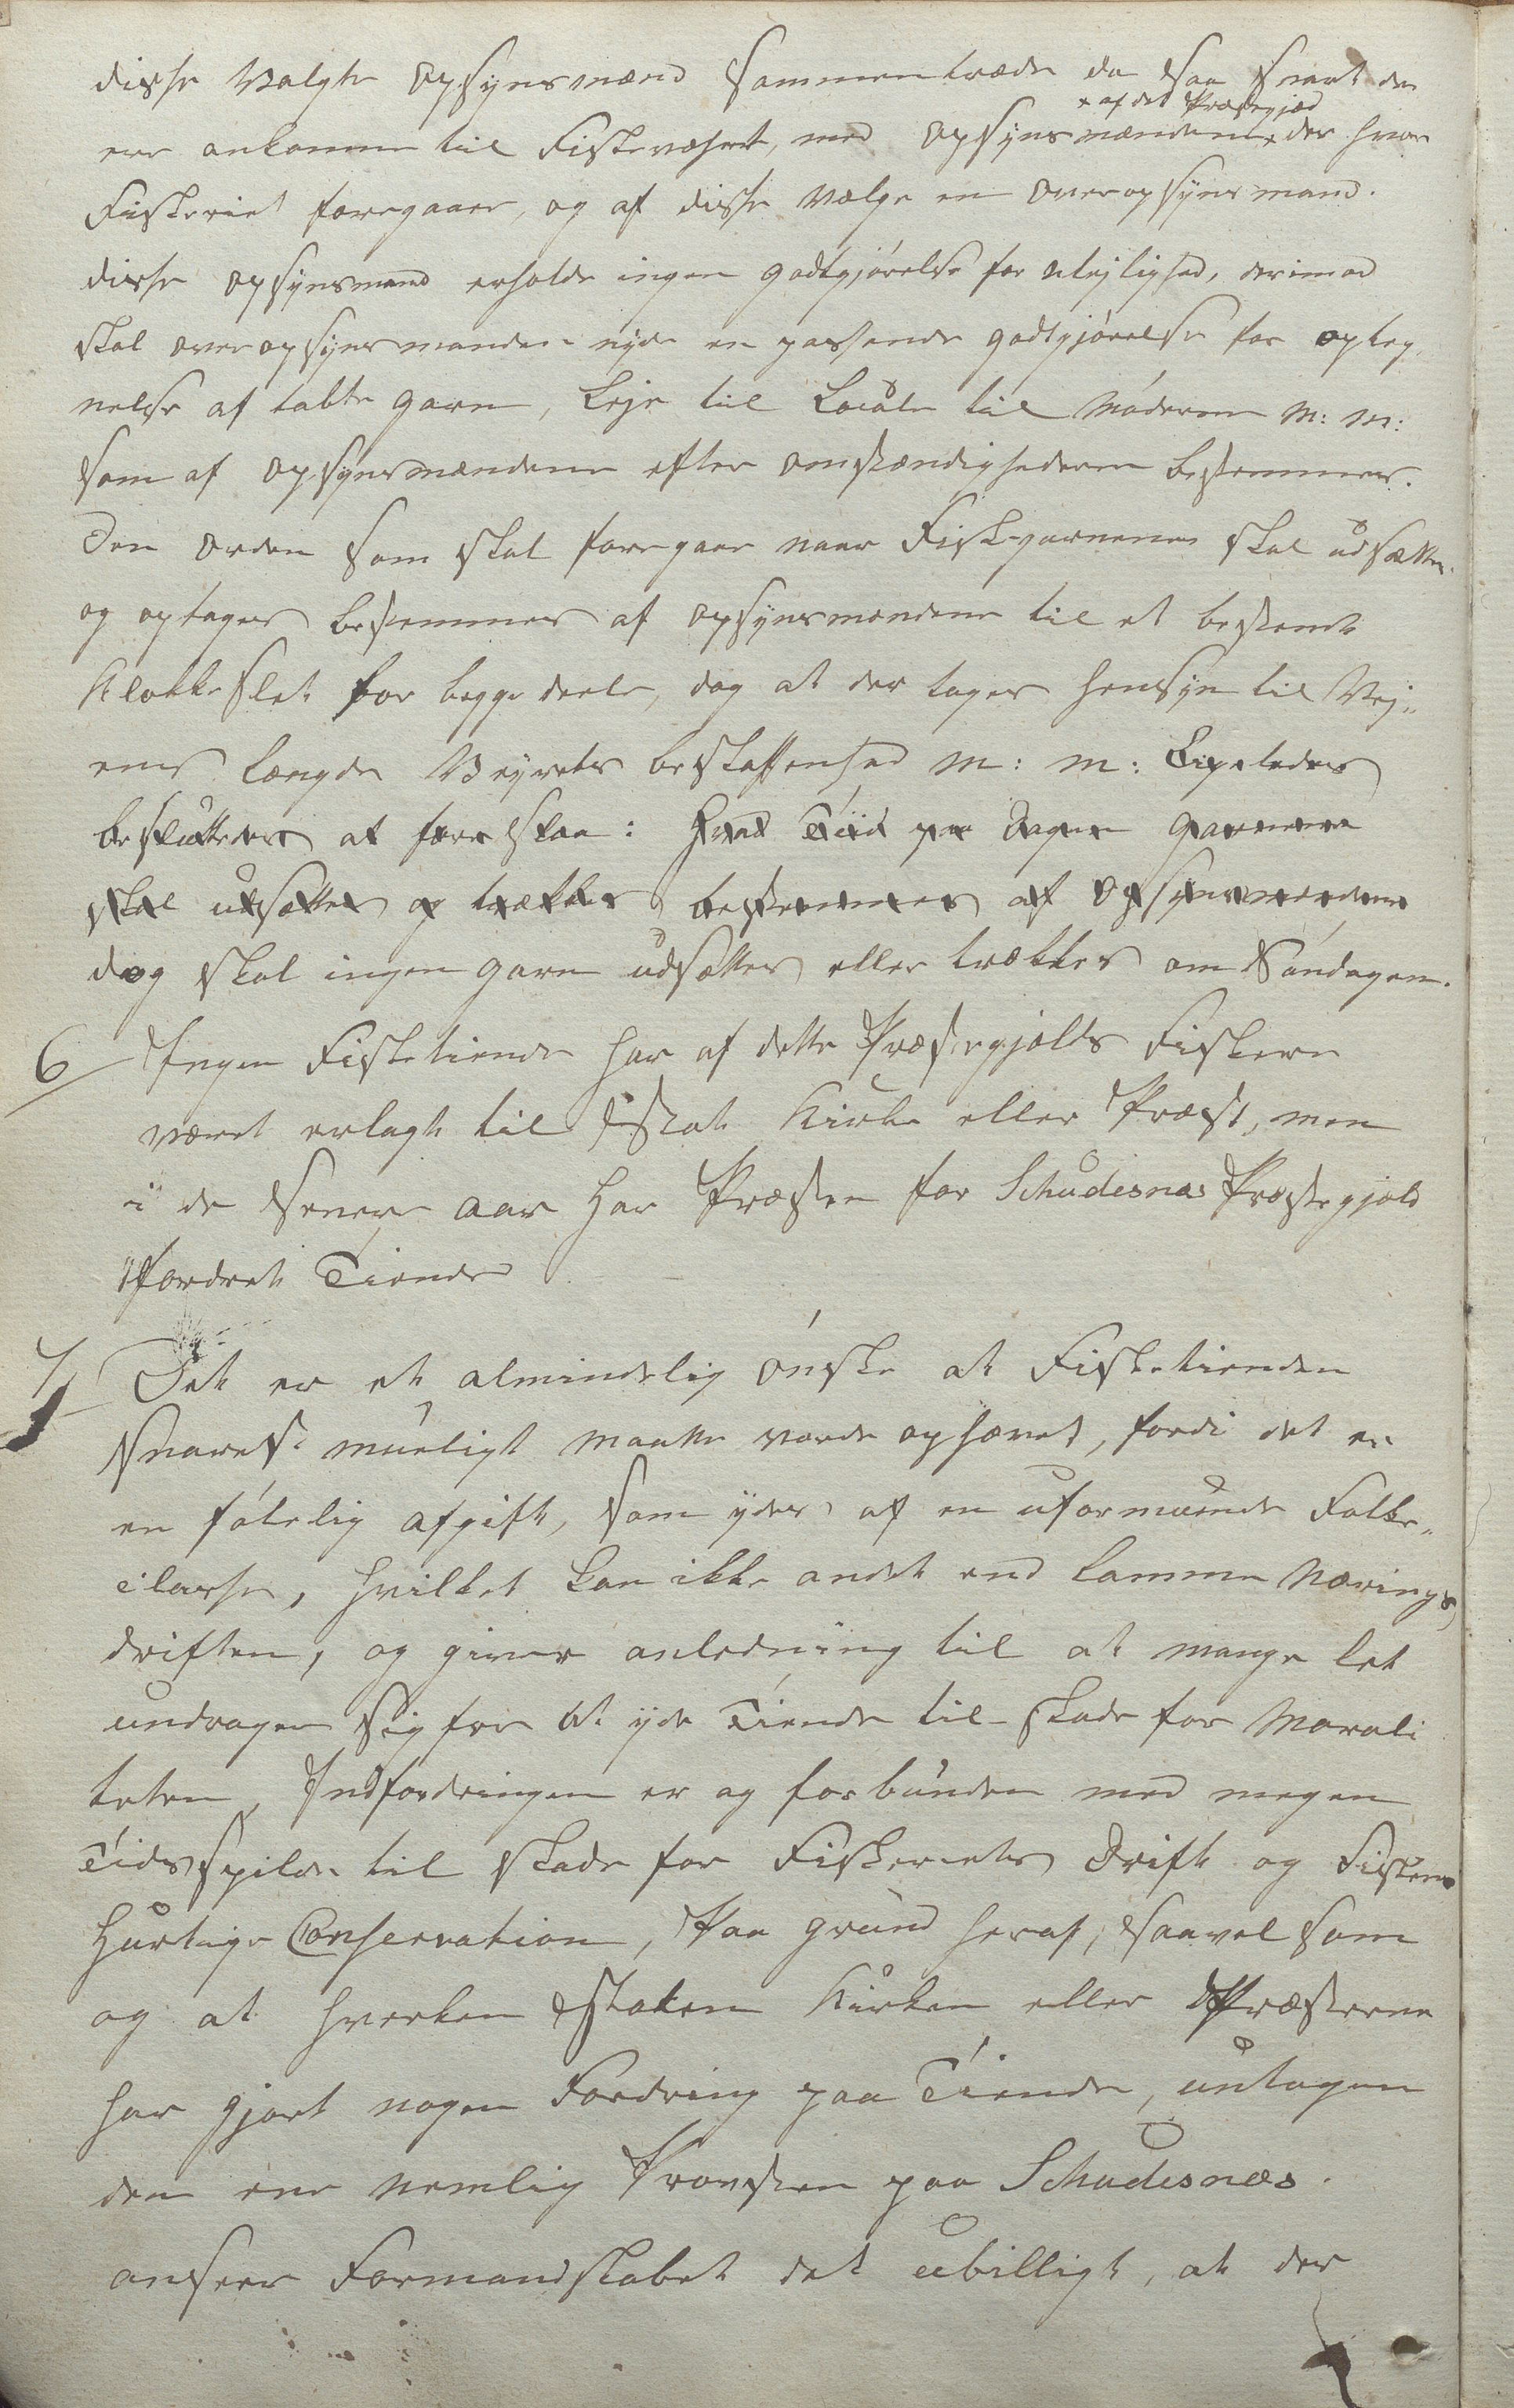 disse Valgte Opsynsmænd Sammentræde da saa snart de
x af det Præstegjæd
ere ankomne til Fiskeværet, med Opsynsmændene x der hvor
Fiskeriet foregaaer, og af disse Vælge en Overopsynsmand.
disse Opsynsmænd erholde ingen godtgjörelse for Uleilighed, derimod
skal Overopsynsmanden nyde en passende godtgjörelse for opteg,
nelse af tabte garn, Leje til Locale til Möderne M: M:
som af Opsynsmændene efter Omstændighederne bestemmes.
Den Orden som skal foregaae naar Fiskegarnene skal udsættes
og optages bestemmes af Opsynsmændene til et bestemt
Klokkeslet for begge deele, dog at der tages hensyn til Vej„
ens Længde Veyrets beskaffenhed M: M: Ligeledes
besluttedes at foreslaa: Hvad Tiid paa Dagen garnene
skal udsættes og trækkes bestemmes af Opsynsmændene
dog skal ingen garn udsættes eller trækkes om Söndagen.
6 Ingen Fisketiende har af dette Præstegjælds Fiskere
været erlagt til Stat Kirke eller Præst, men
i de senere Aar har Præsten for Schudesnæs Præstegjæld
fordret Tiende
7 Det er et almindelig önske at Fisketienden
snarest mueligt maatte vorde ophævet, fordi det er
en fölelig afgift, som ydes af en uformuende Folke„
classe, hvilket kan ikke andet end lamme Nærings
driften, og giver anledning til at mange let
undrager sig for at yde Tiende til skade for Morali
teten, Indfordringen er og forbunden med megen
Tidsspilde til skade for Fiskeriets Drift og Fiskens
Hurtige Conservation, Paa grund heraf, saavel som
og at hverken Staten Kirken eller Præsterne
har gjort nogen Fordring paa Tiende, untagen
den ene nemlig Provsten paa Schudesnæs.
anseer Formandskabet det ubilligt, at der